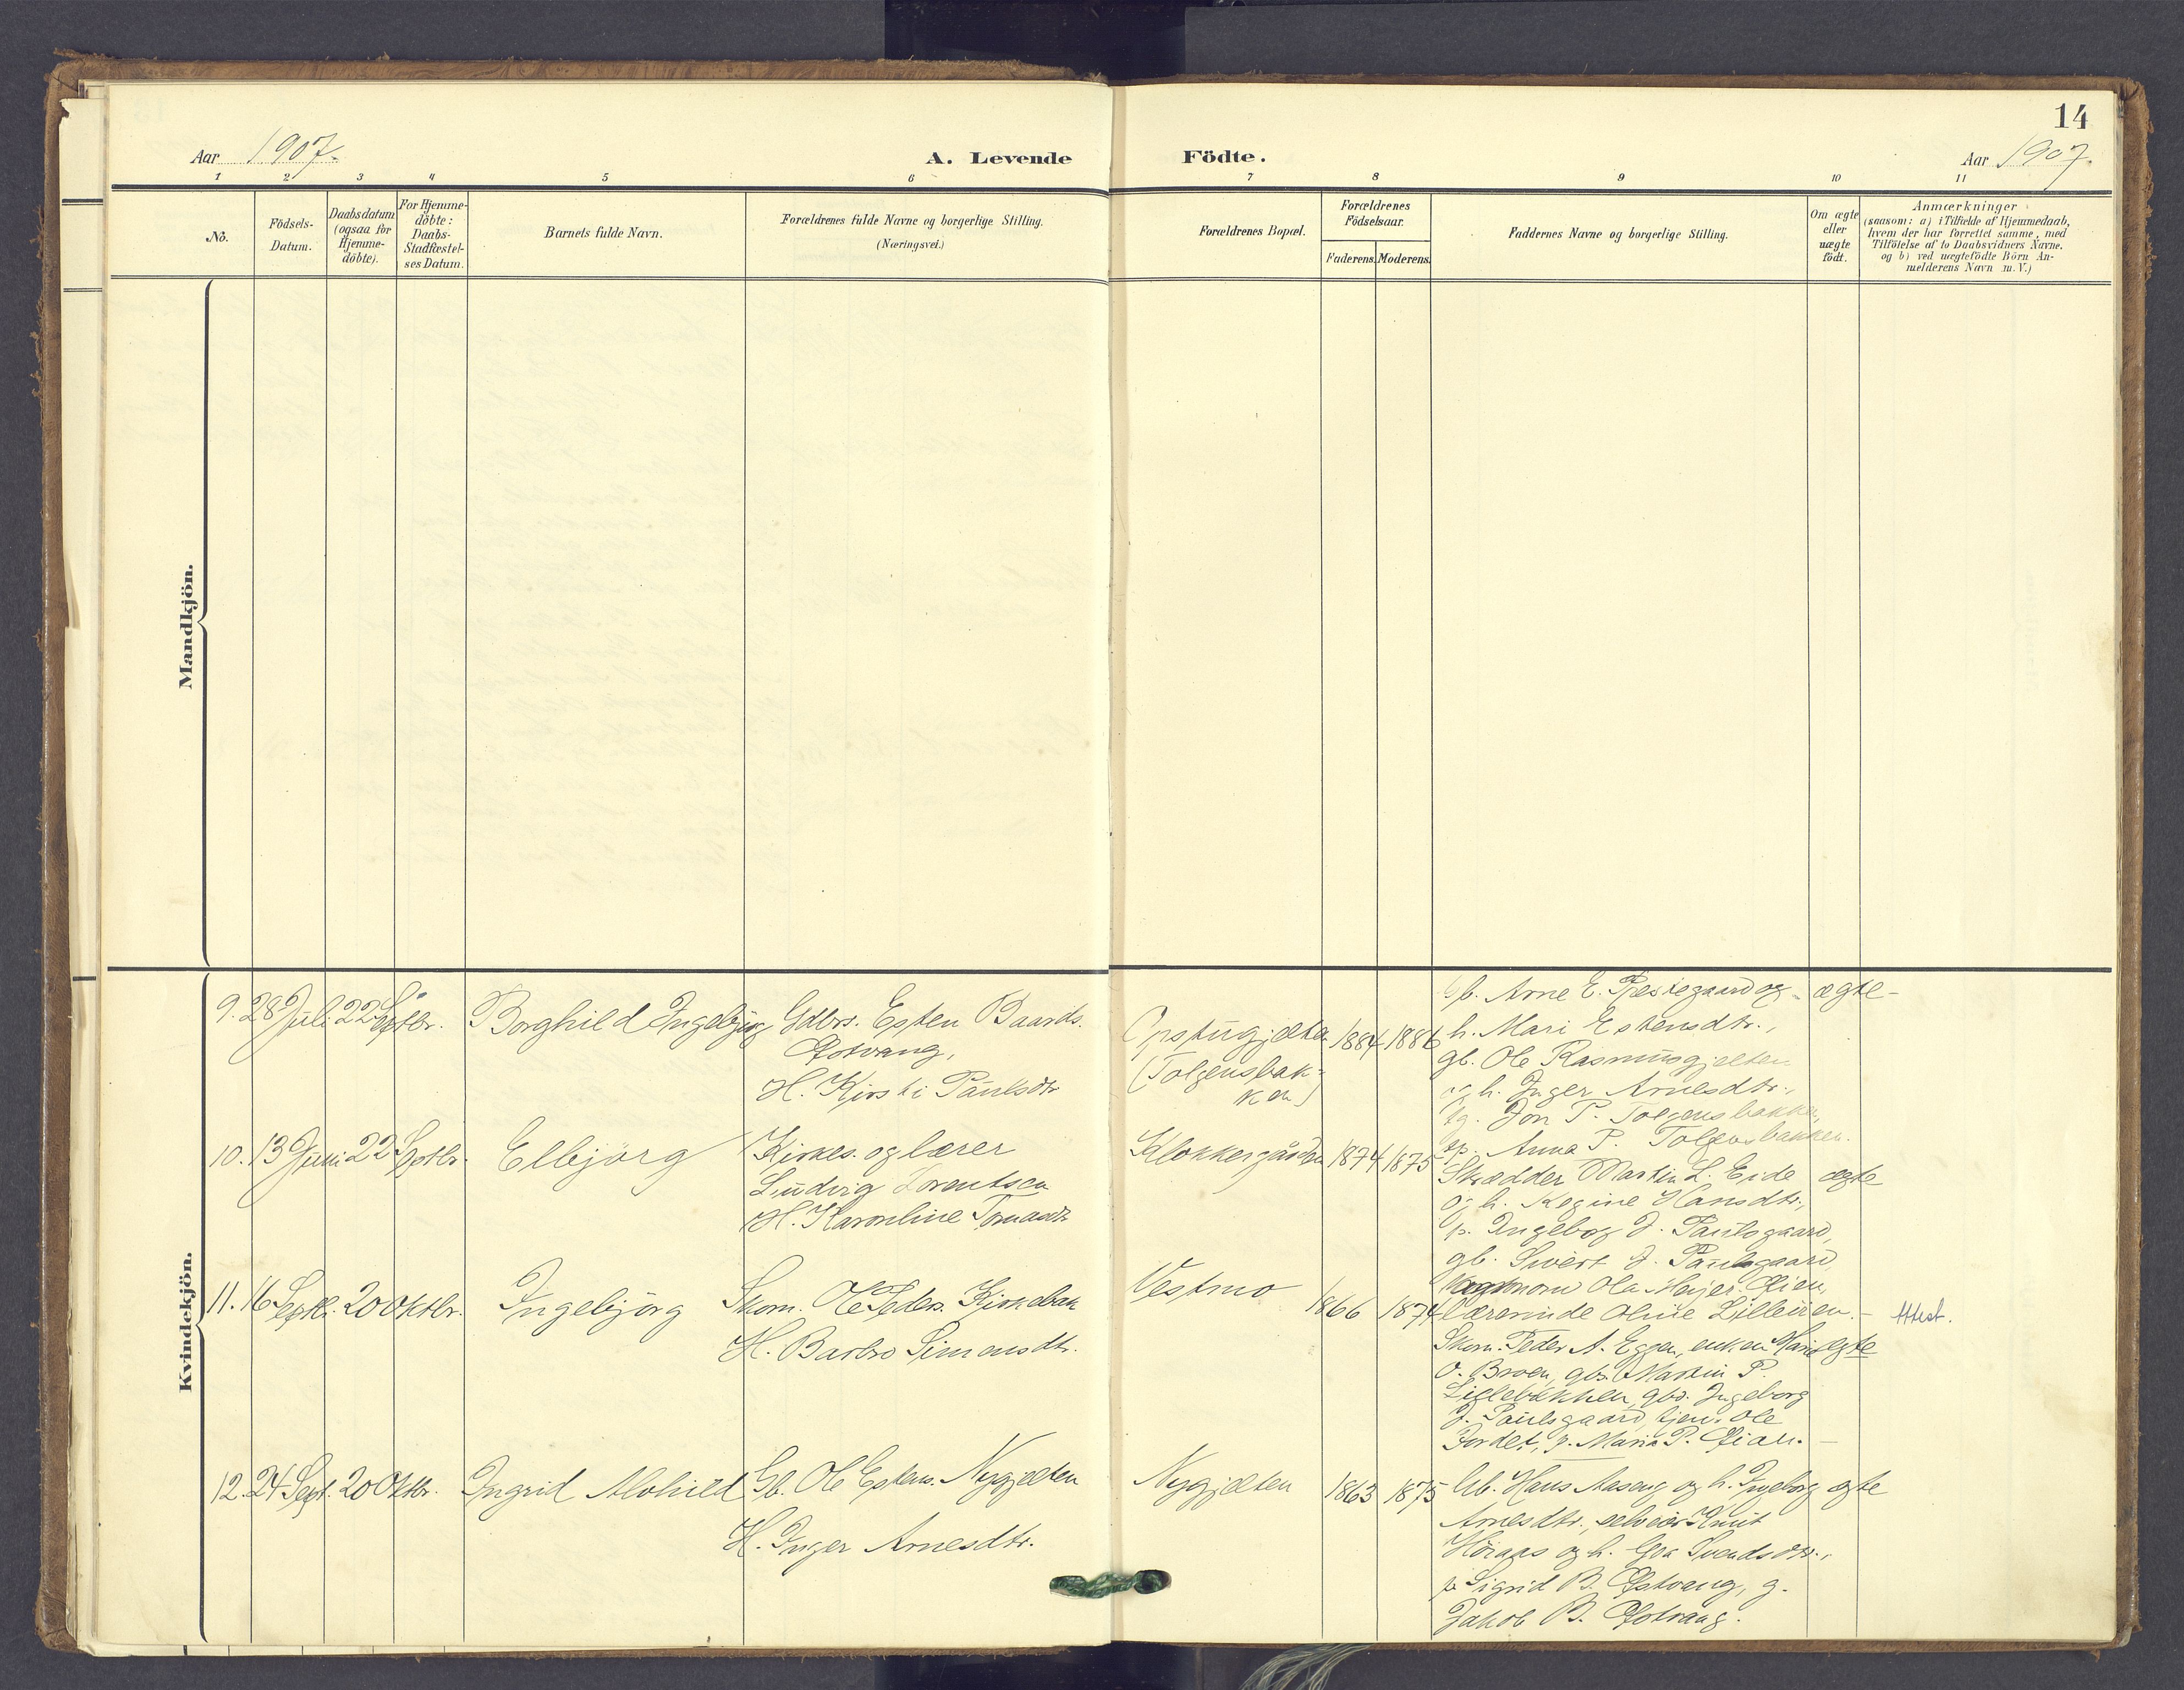 14
Aar 1907.
A. Levende Födte.
Aar 1907.
1 2 3 4 5 6 7 8 9 10 11
No.
Födsels-
Datum.
Daabsdatum
(ogsaa for
Hjemme-
döbte).
For Hjemme-
döbte:
Daabs-
Stadfæstel-
ses Datum.
Barnets fulde Navn.
Forældrenes fulde Navne og borgerlige Stilling.
(Næringsvei.)
Forældrenes Bopæl.
Forældrenes
Födselsaar.
Faderens. Moderens.
Faddernes Navne og borgerlige Stilling.
Om ægte
eller
uægte
født.
Anmærkninger
(saasom: a) i Tilfælde af Hjemmedaab,
hvem der har forrettet samme, med
Tilföielse af to Daabsvidners Navne.
og b) ved uægtefödte Börn An-
melderens Navn m. V.)
Mandkjön.
Kvindekjön.
9. 28 Juli 22 Septbr. Borghild Ingebjørg
Gdbrs. Esten Baards.
Østvang,
H. Kirsti Paulsdtr
Opstugjelten
(Tolgensbak-
ken)
1884 1886
gb. Arne E. Prestegaard og
h. Mari Estensdtr.,
gb. Ole Rasmusgjelten
og h. Inger Arnesdtr.,
Jon P. Tolgensbakken,
p. Anna P. Tolgensbakken.
ægte
10. 13 Juni 22 Septbr. Elbjörg
Kirkes. og lærer
Ludvig Lorentsen
H. Karoline Tomasdtr
Klokkergården 1874 1875
Skrædder Martin L. Eide
og h. Regine Hansdtr.,
p. Ingeborg J. Paulsgaard,
gb. Sivert J. Paulsgaard,
Ola Meijer Øien,
lærerinde Oline Lilleøien.
ægte
11. 16 Septr. 20 Oktbr. Ingebjörg
Skom. Ole Peders. Kirkebak
H. Barbro Simensdtr.
Vestmo
1866 1874
Skom. Peder A. Eggen, enken Mari
O. Broen, gbs. Martin P.
Lillebakken, gbd. Ingeborg
J. Paulsgaard, tjen. Ole
Jordet, p. Maria P. Øian.
ægte
Attest.
12. 24 Sept. 20 Oktbr. Ingrid Alvhild
Gb. Ole Estens. Nygjelten
H. Inger Arnesdtr.
Nygjelten 1863 1875
Gb. Hans Aaseng og h. Ingeborg
Arnesdtr., selveier Knut
Höiaas og h. Goa Svendsdtr.,
p. Sigrid B. Østvang, g.
Jakob B. Østvang.
ægte